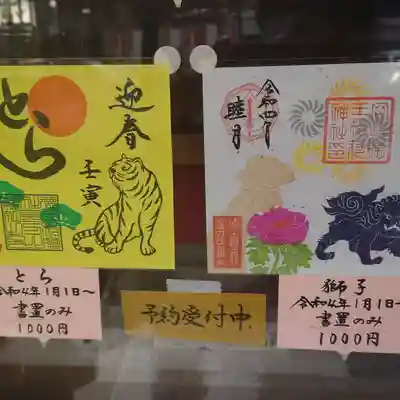 とら
迎春
壬寅
令和四年
睦月
とら
令和4年1月1日～
書置のみ
1000円
予約受付中
獅子
令和4年1月1日～
書置のみ
1000円